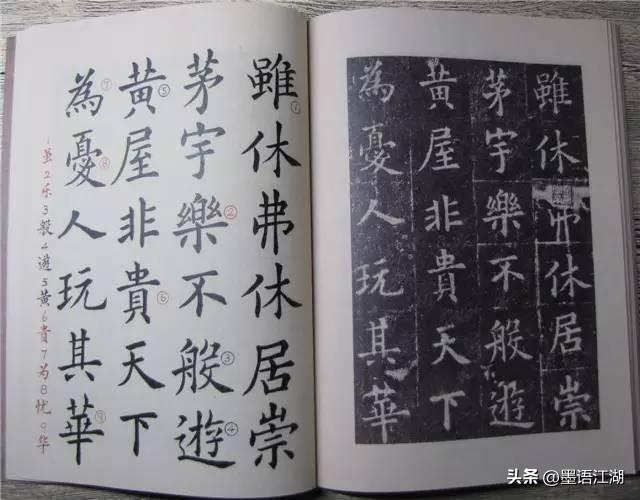 雖①休弗休居崇
茅宇樂②不般③遊④
黄⑤屋非貴⑥天下
為⑦憂⑧人玩其華⑨
1虽2乐3般4遊5黄6贵7为8忧9华
雖休弗休居崇
茅宇樂不般遊
黄屋非貴天下
為憂人玩其華
头条 @墨语江湖